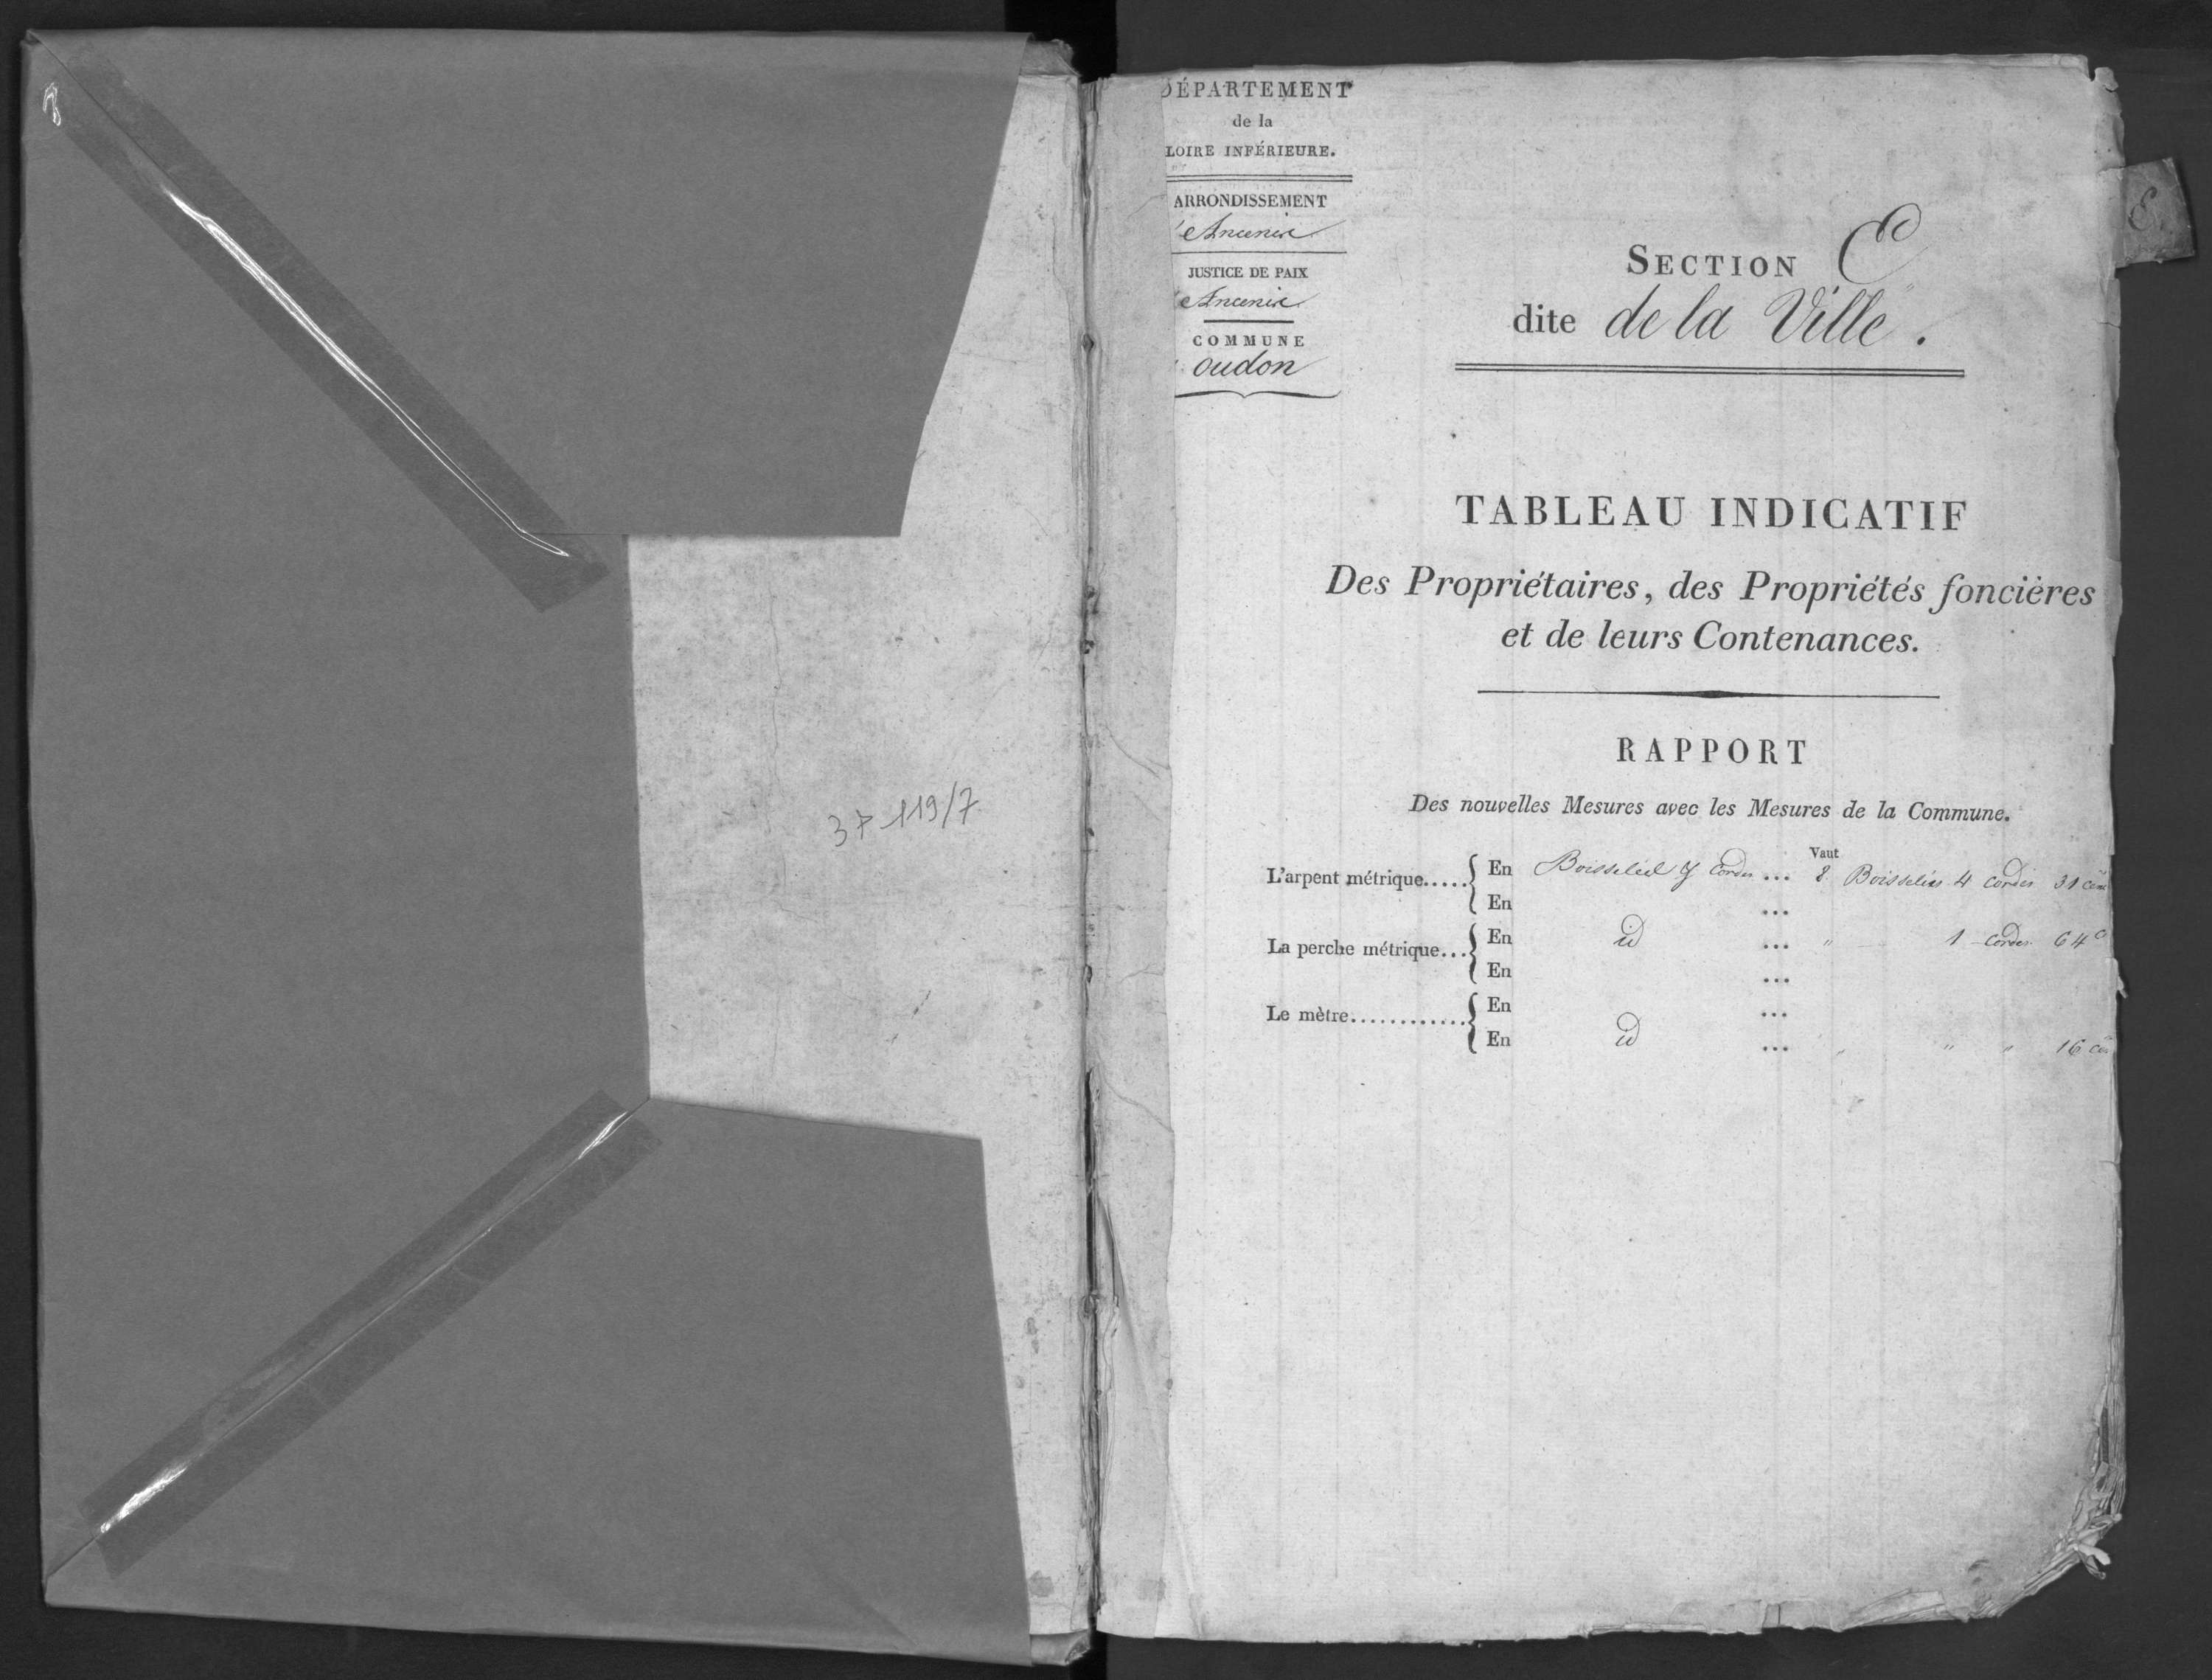 3P 119/7
DÉPARTEMENT
de la
LOIRE INFÉRIEURE.
ARRONDISSEMENT
d'Ancenis
JUSTICE DE PAIX
d'Ancenis
COMMUNE
oudon
SECTION E
dite de la Ville.
E.
TABLEAU INDICATIF
Des Propriétaires, des Propriétés foncières
et de leurs Contenances.
RAPPORT
Des nouvelles Mesures avec les Mesures de la Commune.
Vaut
L'arpent métrique..... En ... 8. 4 cordes 31
En ...
La perche métrique... En id ... " 1 cordes 64 c
En ...
Le mètre............ En ...
En id ... " " " 16